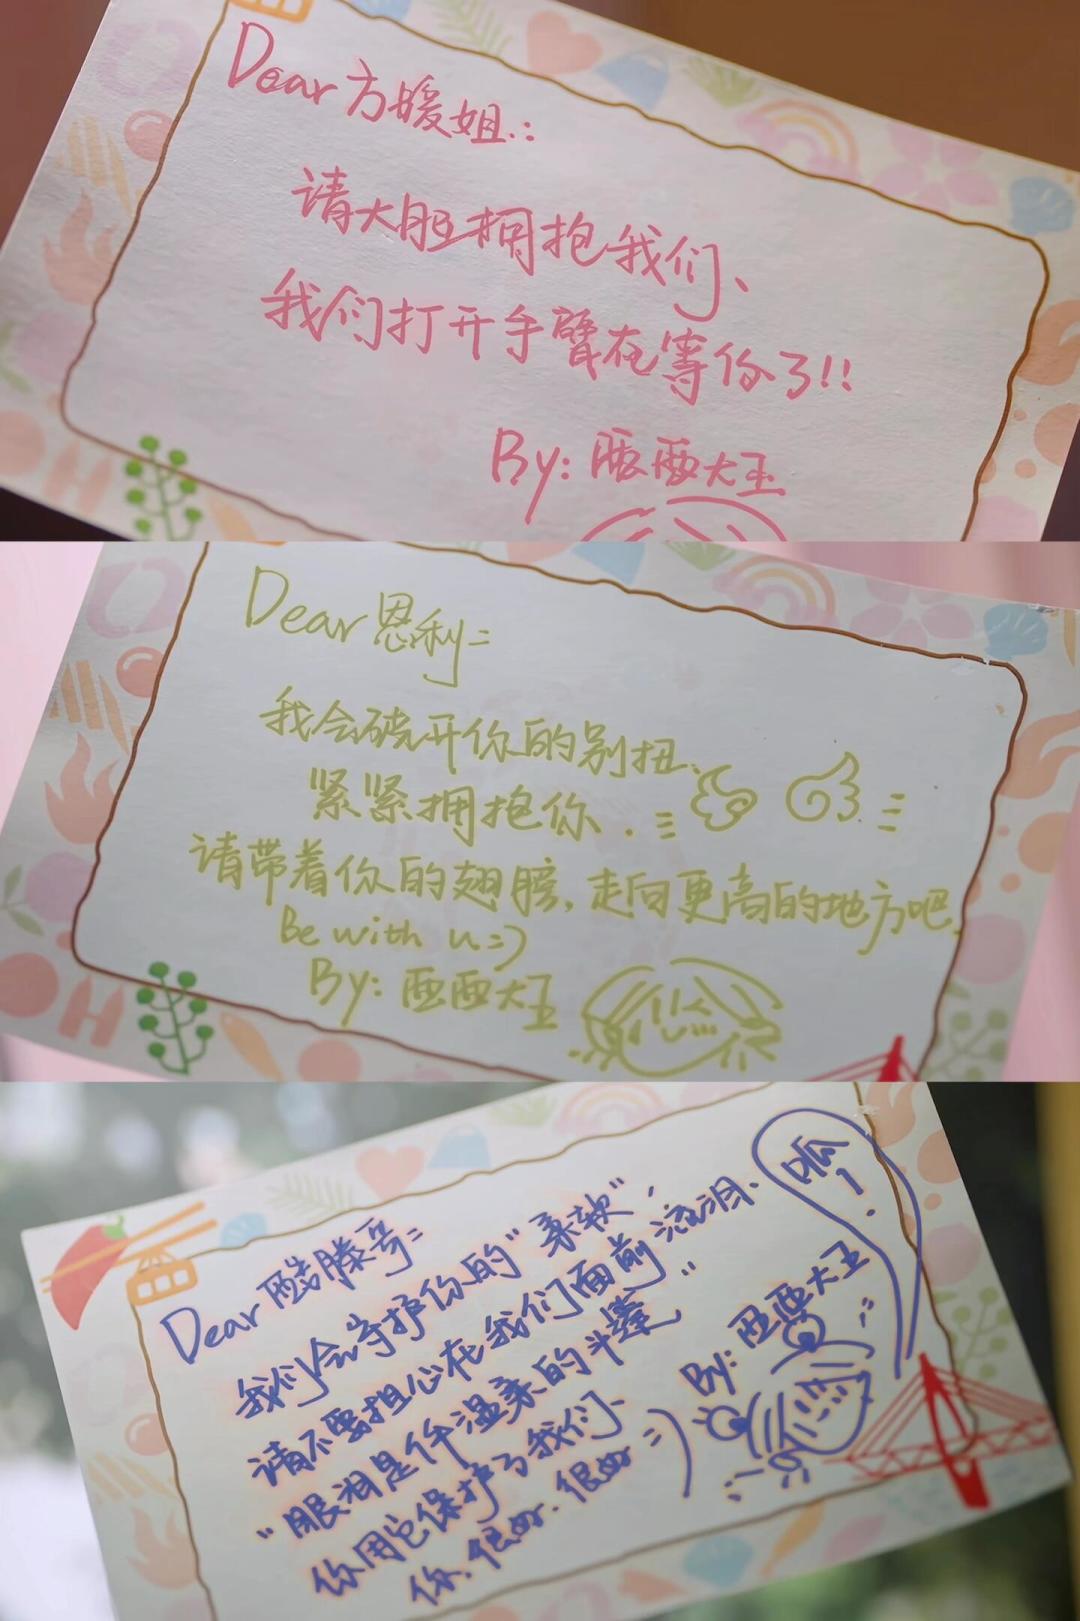 Dear 方媛姐.:
请大胆拥抱我们、
我们打开手臂在等你了!!
By: 西西大王
Dear 恩利:
我会破开你的别扭、
紧紧拥抱你.
请带着你的翅膀,走向更高的地方吧.
Be with u :)
By: 西西大王
Dear 酷滕哥:
我们会守护你的"柔软",
请不要担心在我们面前流泪、
"眼泪是件温柔的斗篷"
你用它保护了我们、
你.很好.很好 :)
By: 西西大王
呱!